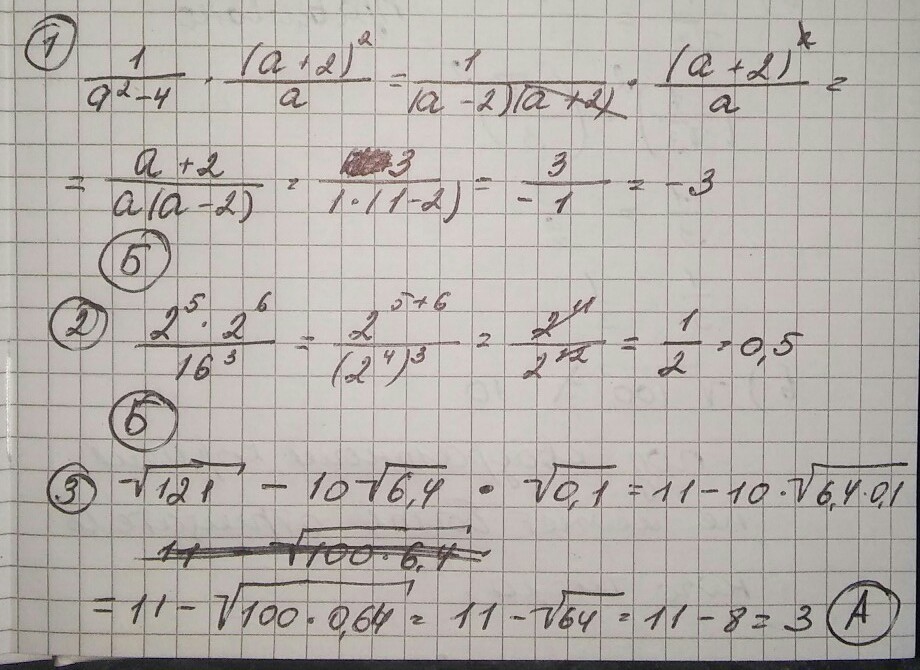 ① 1/(a²-4) · (a+2)²/a = 1/((a-2)(a+2)) · (a+2)²/a =
= (a+2)/(a(a-2)) = 3/(1·(1-2)) = 3/-1 = -3
Б
② 2⁵·2⁶/16³ = 2⁵⁺⁶/(2⁴)³ = 2¹¹/2¹² = 1/2 = 0,5
Б
③ √121 - 10√6,4 · √0,1 = 11-10·√6,4·0,1
11 √100·6,4
= 11-√100·0,64 = 11-√64 = 11-8 = 3 А